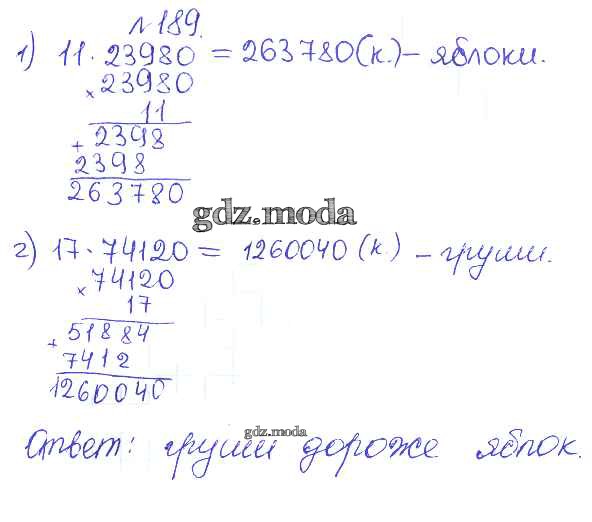 №189.
1) 11·23980 = 263780(к.) – яблоки.
× 23980
11
+ 2398
2398
263780
gdz.moda
2) 17·74120 = 1260040 (к.) – груши.
× 74120
17
+ 51884
7412
1260040
gdz.moda
Ответ: груши дороже яблок.